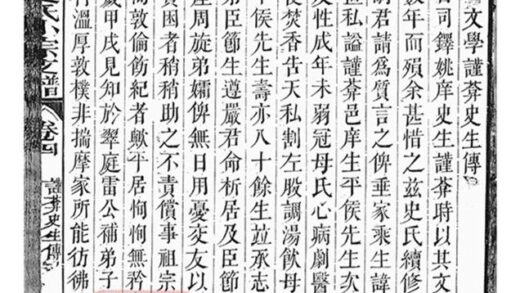 文學謹莽史生傳
司鐸姚庠史生謹莽時以其文
數年而殞余甚惜之茲史氏續修
胡君請為質言之俾垂家乘生諱
世私謚謹莽邑庠生平侯先生次
友性成年未弱冠母氏心病劇醫
焚香告天私割左股調湯飲母
平侯先生壽亦八十餘生並承志
弟臣節生遵嚴君命析居及臣節
產周旋弟孀俾無日用憂交友以
貧困者稍稍助之不責償事祖宗
尚敦倫飭紀者歟平居恂恂無矜
歲甲戌見知於翠庭雷公補弟子
溫厚敦樸非揣摩家所能彷彿
氏小宗之譜 卷四 謹莽史生傳